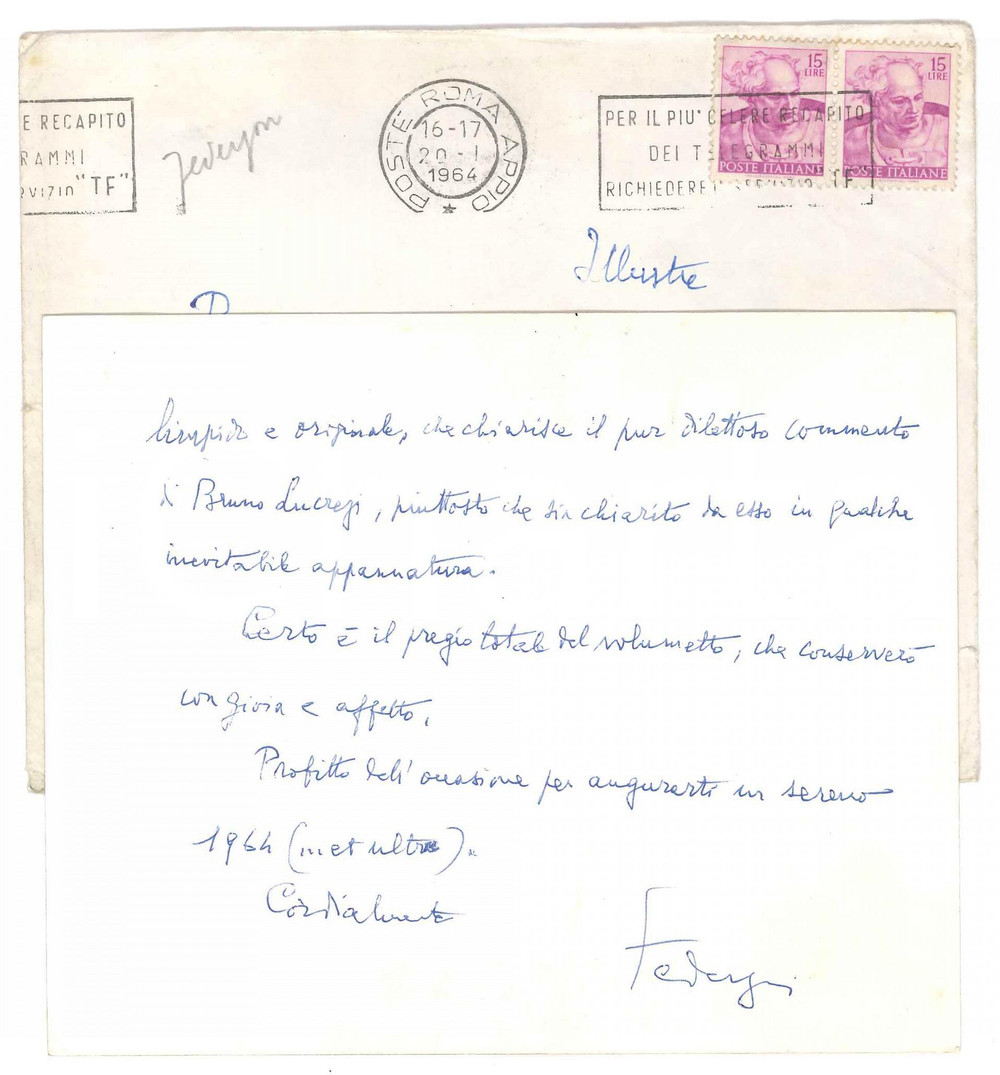 E RECAPITO
RAMMI
RVIZIO "TF"
POSTE ROMA APPIO
16-17
20-1
1964
PER IL PIU' CELERE RECAPITO
DEI TELEGRAMMI
RICHIEDERE SERVIZIO "TF"
15
LIRE
POSTE ITALIANE
15
LIRE
POSTE ITALIANE
Illustre
limpido e originale, che chiarisce il pur dilettoso commento
di Bruno Lucrezi, piuttosto che sia chiarito da esso in qualche
inevitabile appannatura.
Certo è il pregio totale del volumetto, che conserverò
con gioia e affetto.
Profitto dell'occasione per augurarti un sereno
1964 (in et ultra).
Cordialmente